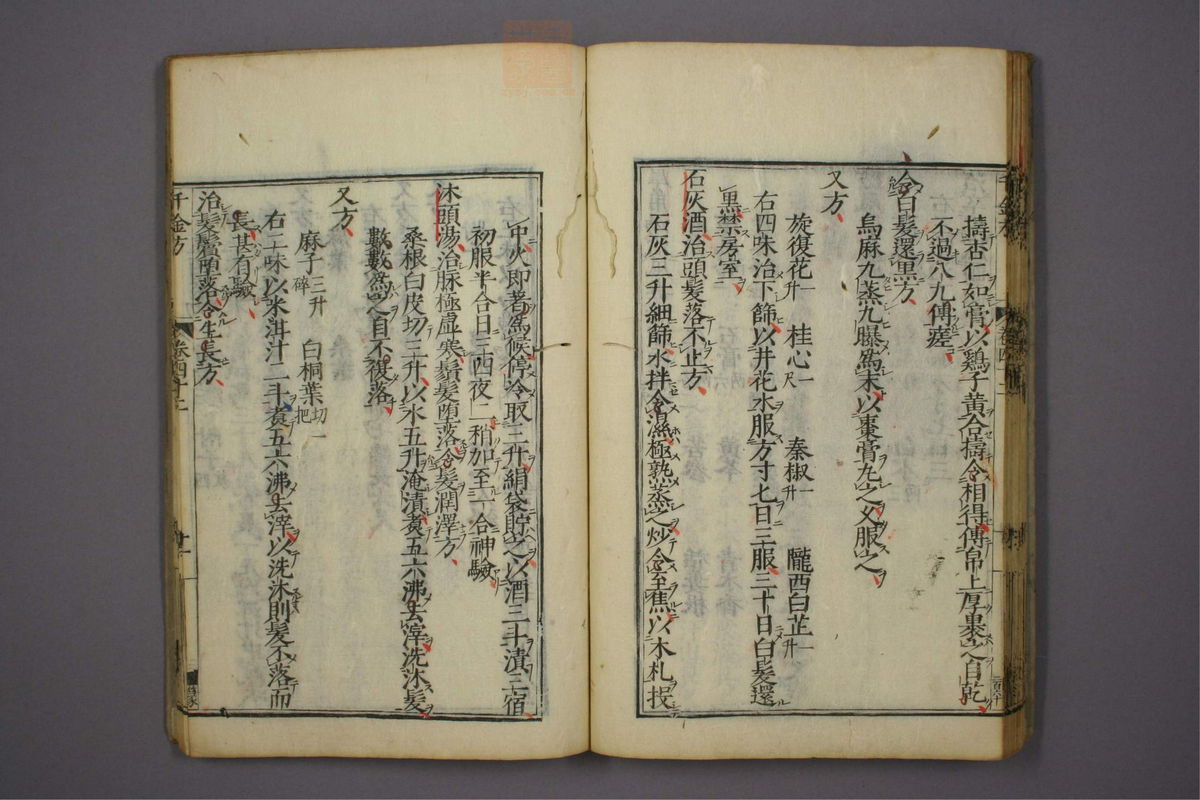 擣杏仁如膏以鷄子黃合擣令相得傅帛上厚裹之自乾
不過八九傅瘥
令白髮還黑方
烏麻九蒸九曝爲末以棗膏丸之乂服之
又方
旋復花一升 桂心一尺 秦椒一升 隴西白芷一升
右四味治下篩以井花水服方寸七日三服三十日白髮還
黑禁房室
石灰酒治頭髮落不止方
石灰三升細篩水拌令濕極熟蒸之炒令至焦以木札投
中火即著爲候停冷取三升絹袋貯之以酒三斗漬三宿
初服半合日三四夜二稍加至一合神驗
沐頭湯治脉極虛寒鬚髮墮落令髮潤澤方
桑根白皮切三升以水五升淹漬煑五六沸去滓洗沐髮
數數爲之自不復落
又方
麻子三升碎 白桐葉切一把
右二味以米泔汁二斗煑五六沸去滓以洗沐則髮不落而
長甚有驗
治髮鬢墮落令生長方
千金方 卷四十二